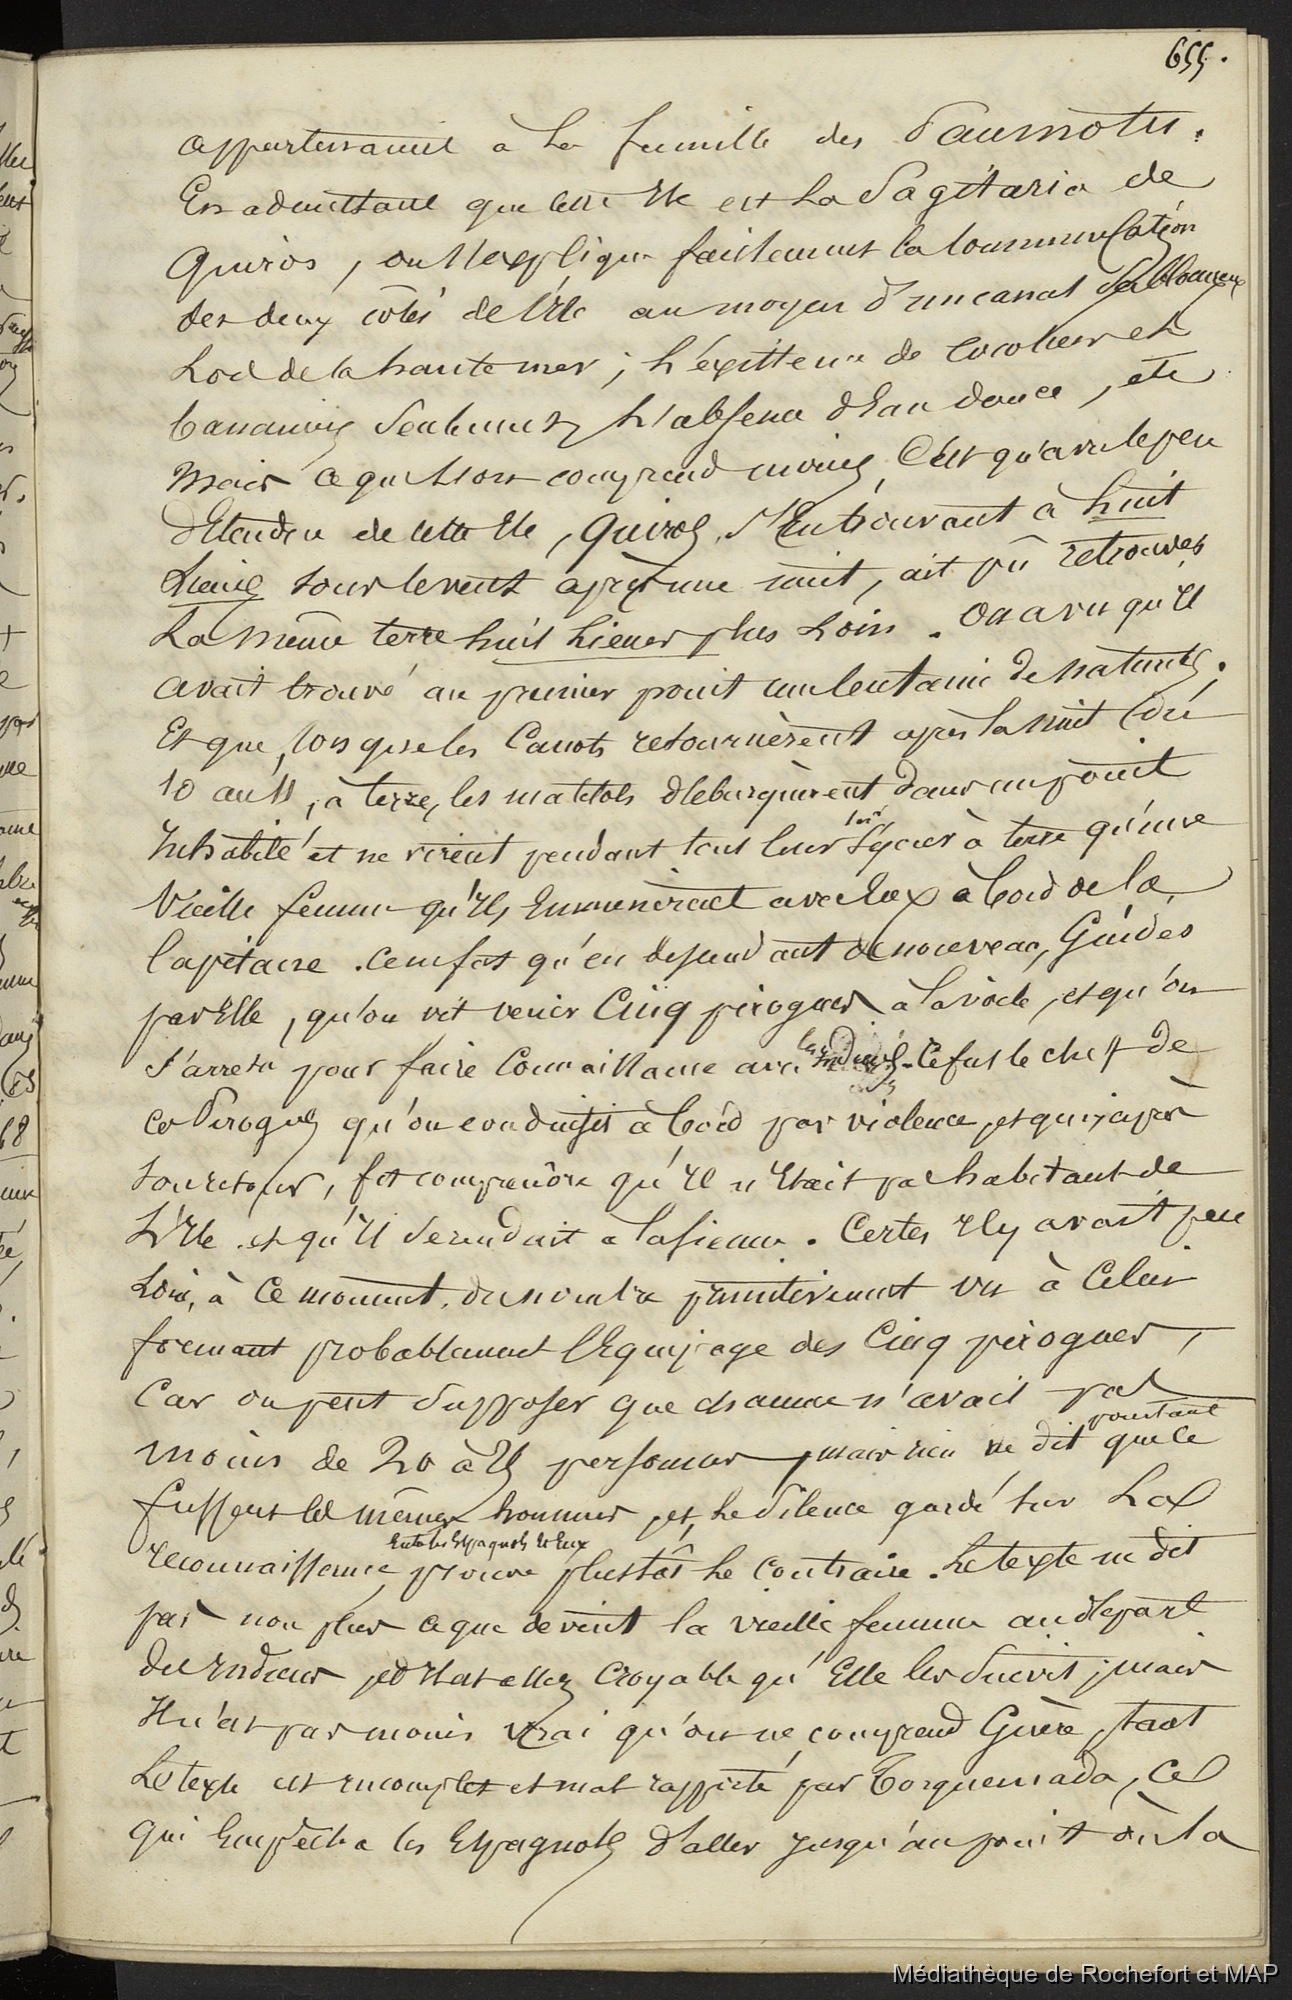 655.
appartenaient à la famille des Paumotu.
En admettant que cette Ile est la Sagitaria de
Quiros, on s'explique facilement la communication
des deux côtés de l'Ile au moyen d'un canal
Loin de la haute mer ; l'existence de cocotiers et
bananiers seulement, l'absence d'Eau douce, etc
Mais ce que l'on comprend moins, C'est qu'avec le peu
d'Etendue de cette Ile, Quiros, s'En trouvant à huit
Lieues sous le vent après une nuit, ait pû retrouver
La même terre huit Lieues plus Loin. On a vu qu'Il
avait trouvé au premier point une centaine de naturels.
Et que, lorsque les Canots retournèrent après la nuit du
10 au 11, à terre, les matelots débarquèrent dans un point
Inhabité et ne virent pendant tout leur séjour à terre qu'une
Vieille femme qu'Ils Emmenèrent avec Eux à bord de la
Capitane. Ce ne fut qu'en descendant de nouveau, Guidés
par Elle, qu'on vit venir Cinq pirogues à la voile, et qu'on
s'arrêta pour faire Connaissance avec les Indiens. Ce fut le chef de
ces Pirogues qu'on conduisit à bord par violence, et qui, après
son retour, fit comprendre qu'Il n'Etait pas habitant de
L'Ile et qu'Il se rendait à la sienne. Certes Il y avait peu
Loin, à Ce moment, du nombre primitivement vu à Celui
formant probablement l'Equipage des Cinq pirogues,
Car on peut supposer que chacune n'avait pas
moins de 20 à 25 personnes, mais rien ne dit pourtant que ce
fussent les mêmes hommes, et, Le silence gardé sur La
reconnaissance Entre les Espagnols et Eux, prouve plustôt le contraire. Le texte ne dit
pas non plus ce que devint la vieille femme au départ
des Indiens, et Il est assez Croyable qu'Elle les suivit ; mais
Il n'est pas moins vrai qu'on ne comprend Guère, tant
Le texte est incomplet et mal rapporté par Torquemada, Ce
qui Empêcha les Espagnols d'aller jusqu'au point où la
Médiathèque de Rochefort et MAP